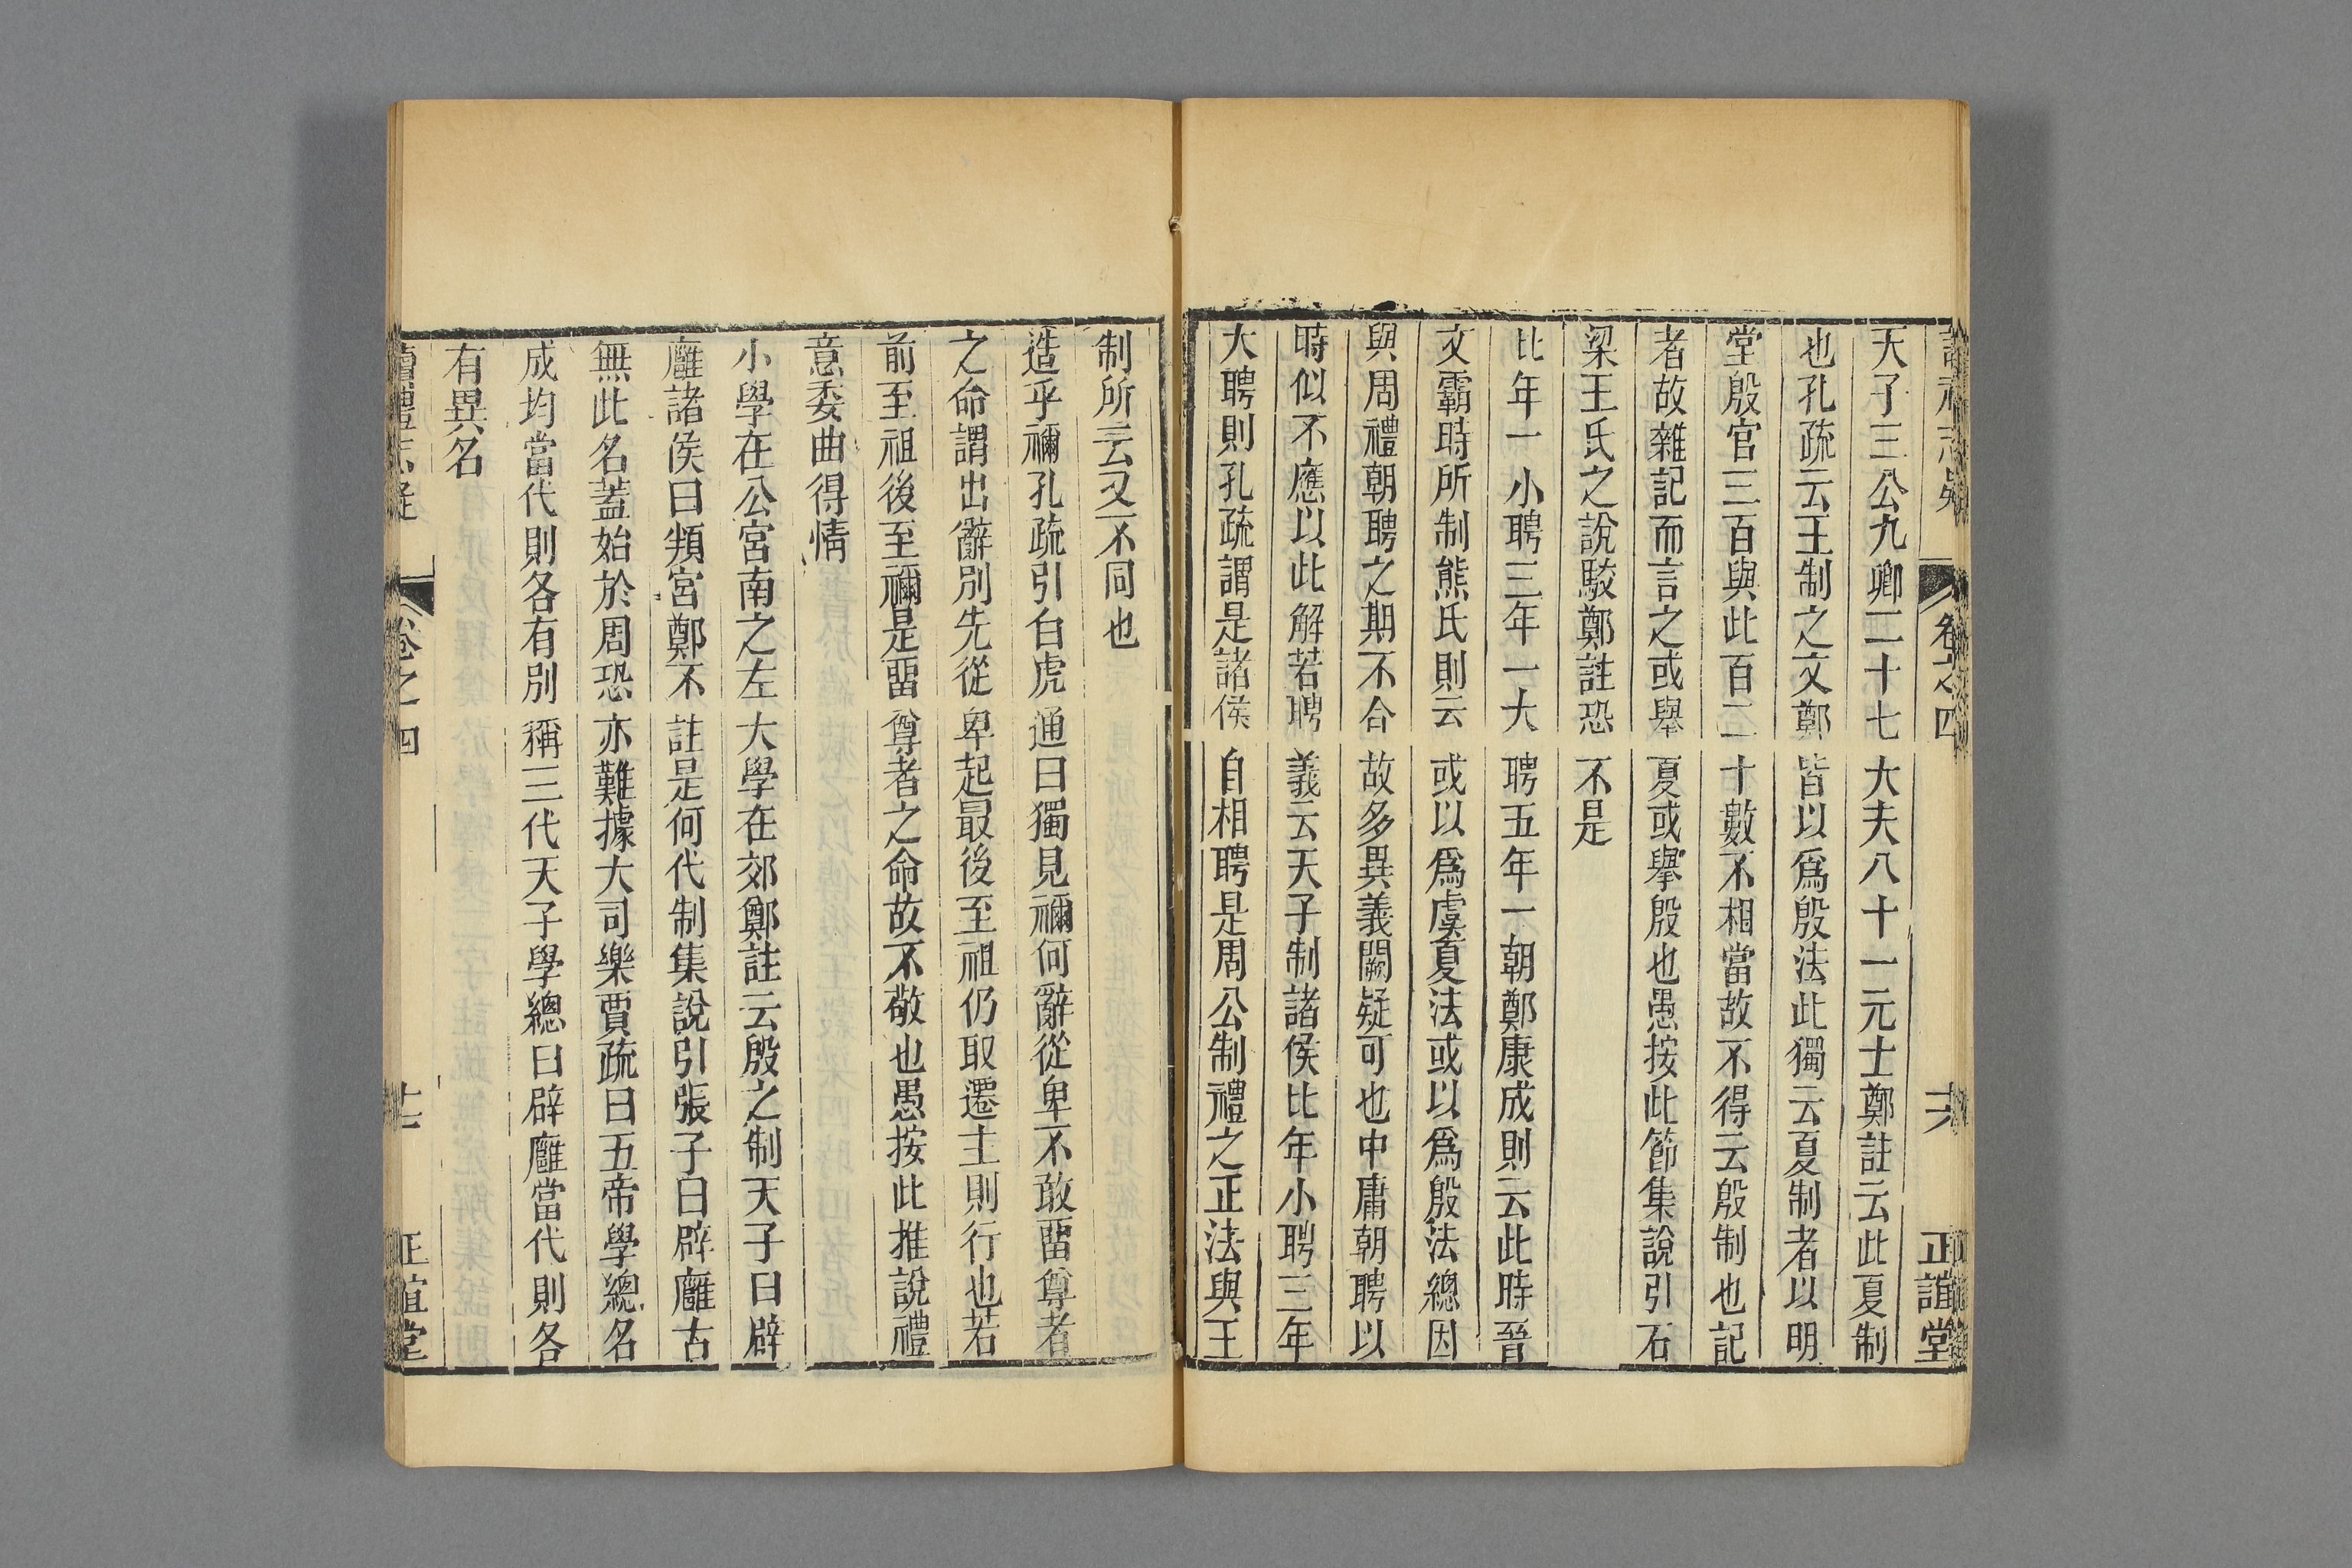 天子三公九卿二十七大夫八十一元士鄭註云此夏制
也孔疏云王制之文鄭皆以爲殷法此獨云夏制者以明
堂殷官三百與此百二十數不相當故不得云殷制也記
者故雜記而言之或舉夏或舉殷也愚按此節集說引石
梁王氏之說駁鄭註恐不是
比年一小聘三年一大聘五年一朝鄭康成則云此時晉
文霸時所制熊氏則云或以爲虞夏法或以爲殷法總因
與周禮朝聘之期不合故多異義闕疑可也中庸朝聘以
時似不應以此解若聘義云天子制諸侯比年小聘三年
大聘則孔疏謂是諸侯自相聘是周公制禮之正法與王
卷之四
正誼堂
制所云又不同也
造乎禰孔疏引白虎通曰獨見禰何辭從卑不敢畱尊者
之命謂出辭別先從卑起最後至祖仍取遷主則行也若
前至祖後至禰是畱尊者之命故不敬也愚按此推說禮
意委曲得情
小學在公宮南之左大學在郊鄭註云殷之制天子曰辟
廱諸侯曰頖宮鄭不註是何代制集說引張子曰辟廱古
無此名蓋始於周恐亦難據大司樂賈疏曰五帝學總名
成均當代則各有別稱三代天子學總曰辟廱當代則各
有異名
卷之四
正誼堂